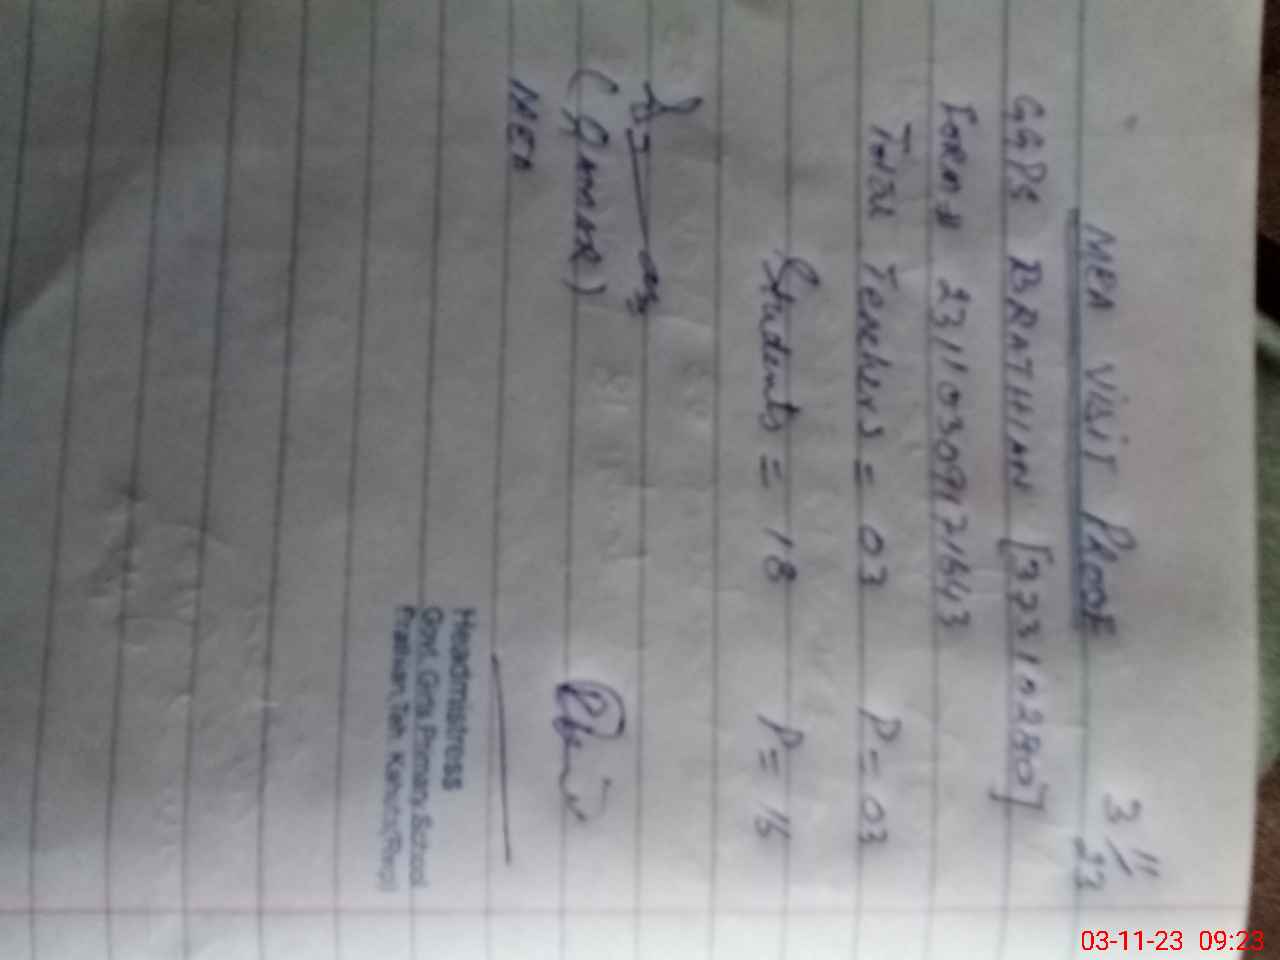 MEA VISIT PROOF
3/11/23
GGPS BRATHIAN [37310280]
FORM# 23110309171643
Total Teachers = 03 P= 03
Students = 18 P= 15
(QAMAR)
MEA
Headmistress
Govt. Girls Primary School
Brathian Teh. Kahuta (Rwp)
03-11-23 09:23